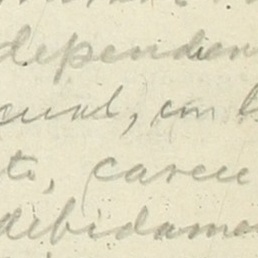 dependen
cual, en l
te, carece
debidamen